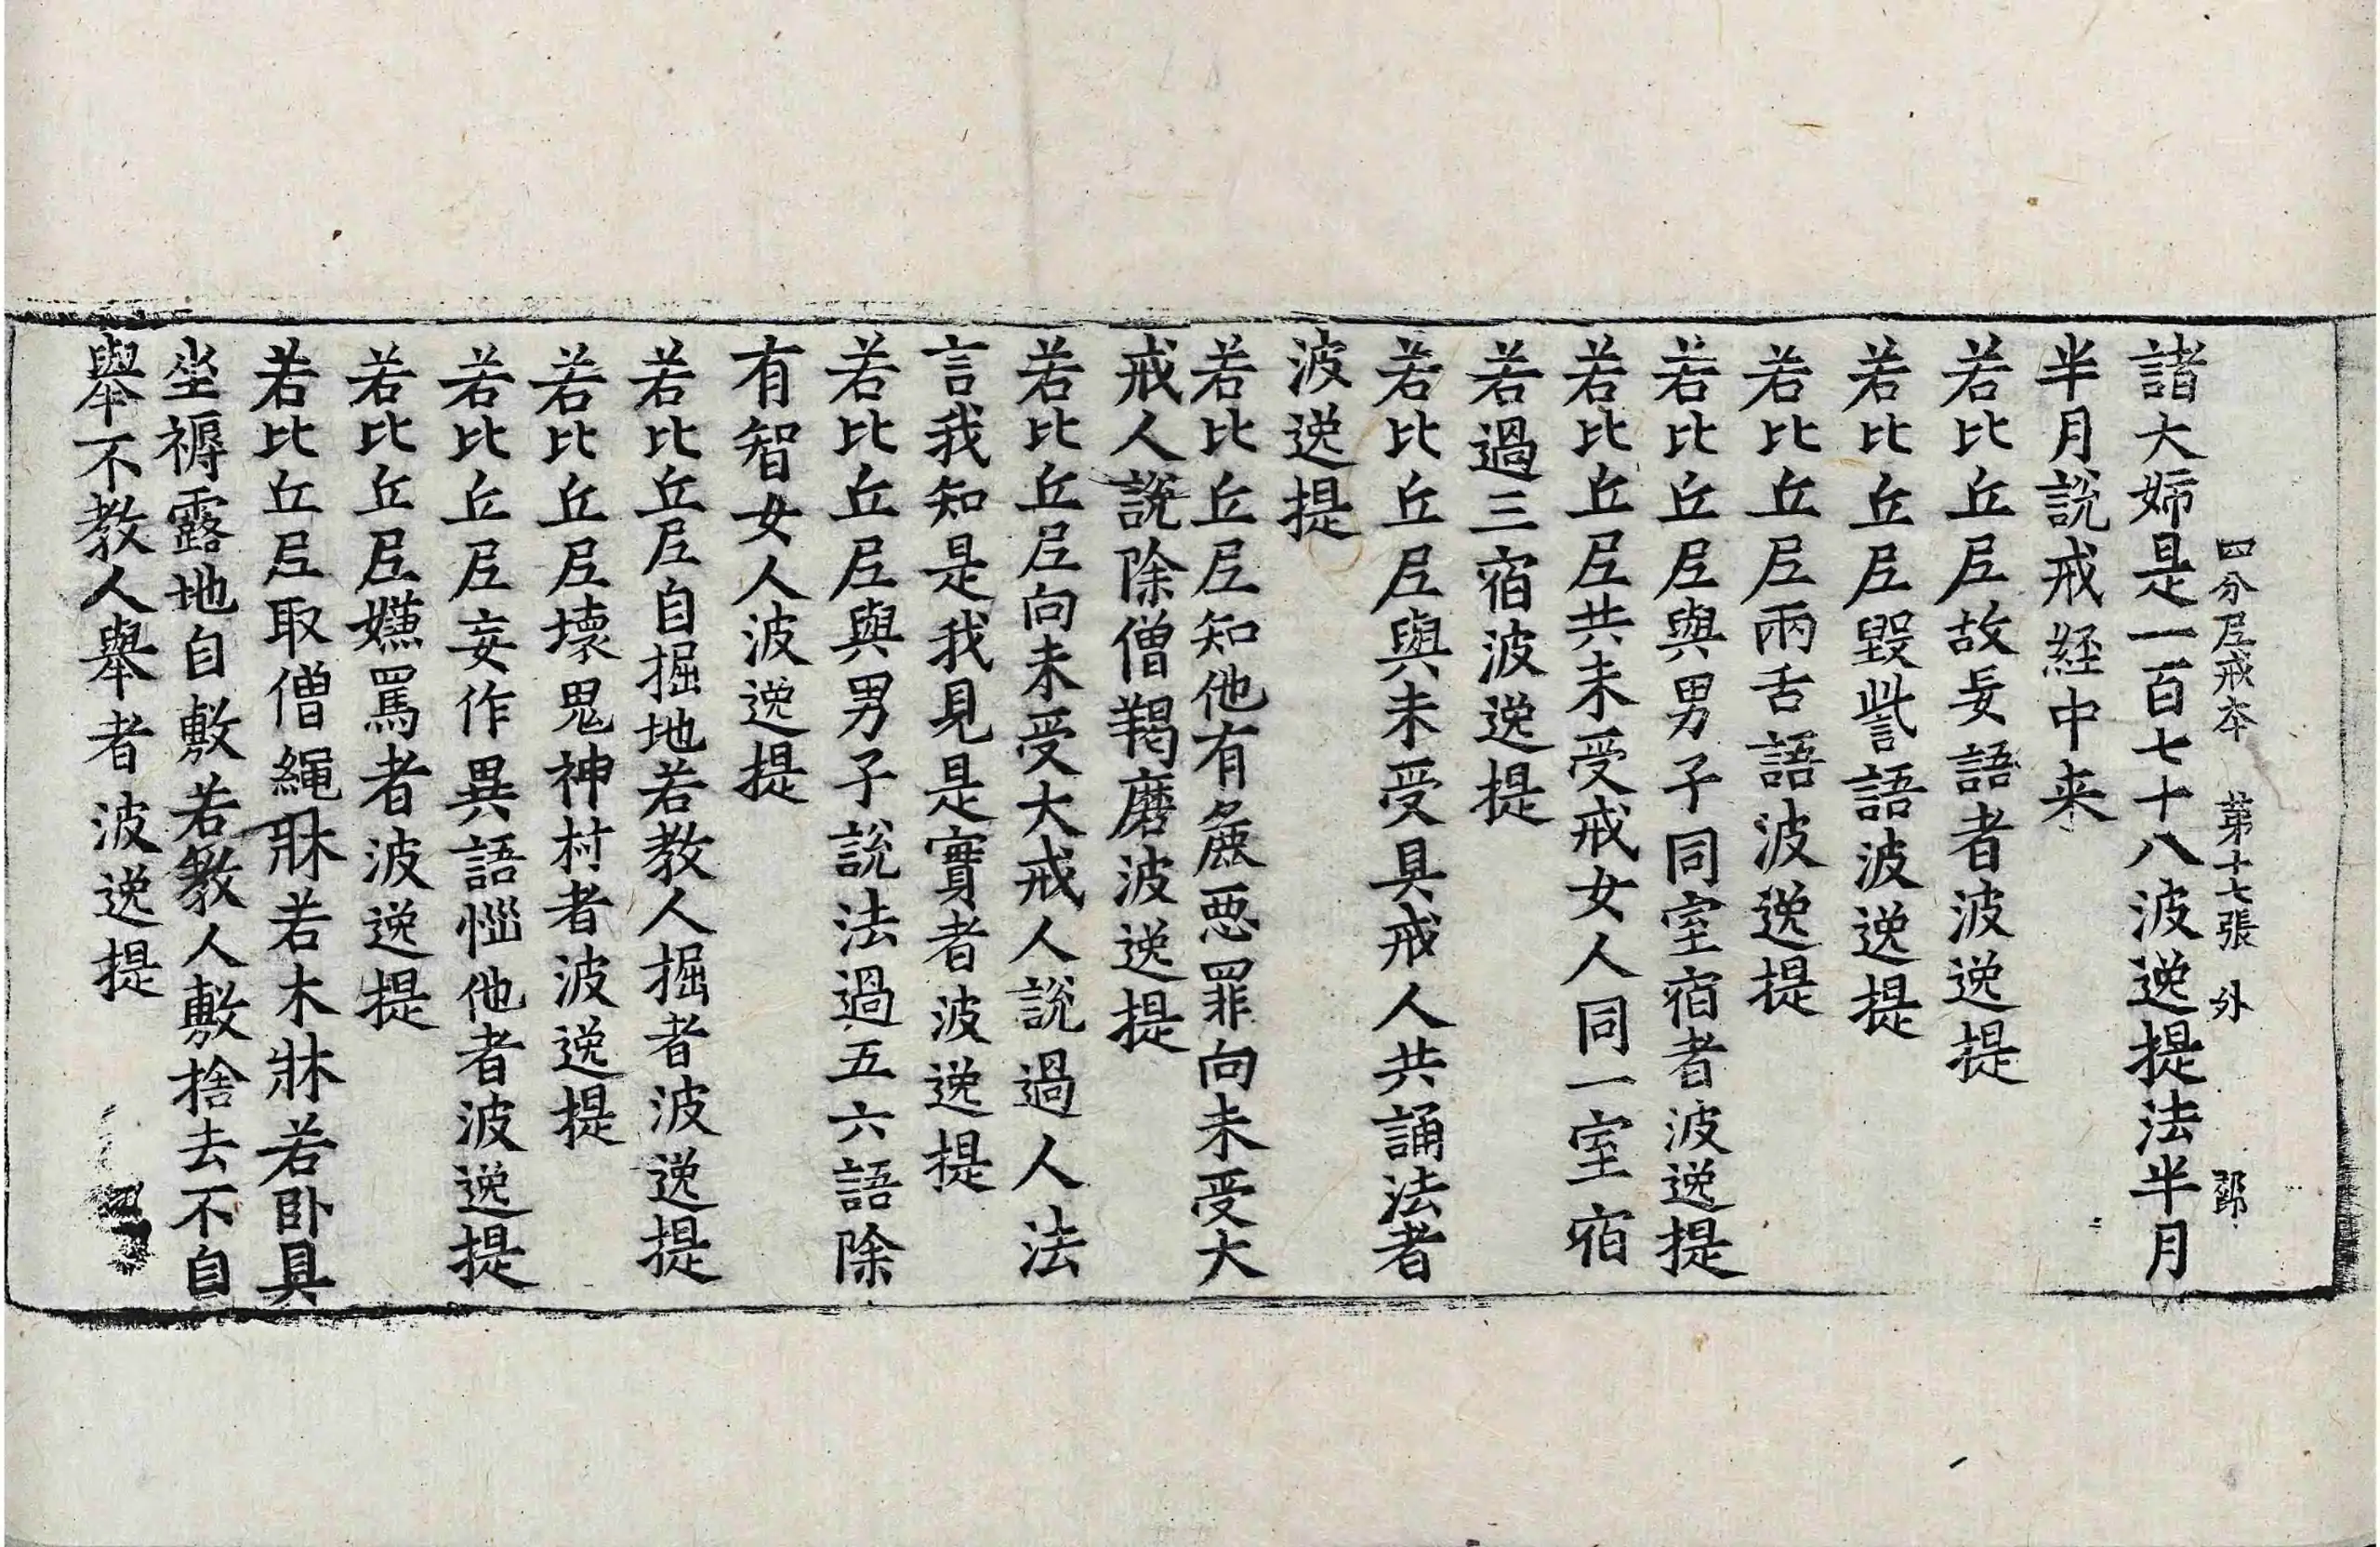 四分尼戒本 第十七張 外 郭
諸大姉是一百七十八波逸提法半月
半月說戒経中来
若比丘尼故妄語者波逸提
若比丘尼毀訾語波逸提
若比丘尼兩舌語波逸提
若比丘尼與男子同室宿者波逸提
若比丘尼共未受戒女人同一室宿
若過三宿波逸提
若比丘尼與未受具戒人共誦法者
波逸提
若比丘尼知他有麁惡罪向未受大
戒人說除僧羯磨波逸提
若比丘尼向未受大戒人說過人法
言我知是我見是實者波逸提
若比丘尼與男子說法過五六語除
有智女人波逸提
若比丘尼自掘地若教人掘者波逸提
若比丘尼壊鬼神村者波逸提
若比丘尼妄作異語惱他者波逸提
若比丘尼嫌罵者波逸提
若比丘尼取僧繩牀若木牀若卧具
坐褥露地自敷若教人敷捨去不自
舉不教人舉者波逸提